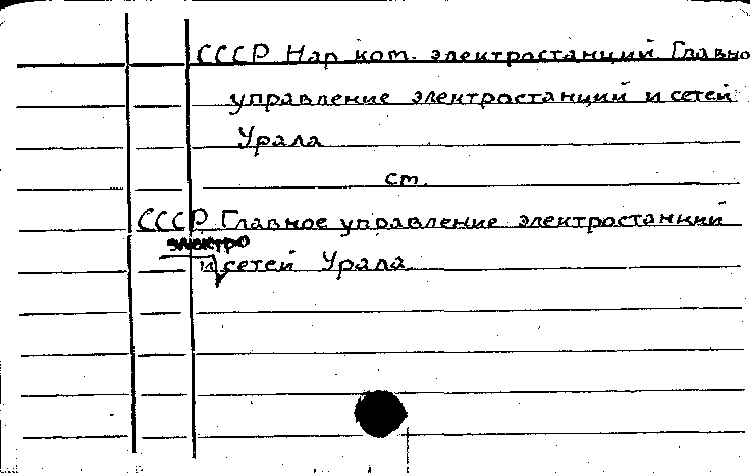 СССР Нар ком. электростанций Главно
управление электростанций и сетей
Урала
ст.
СССР Главное управление электростанций
электро
и сетей Урала